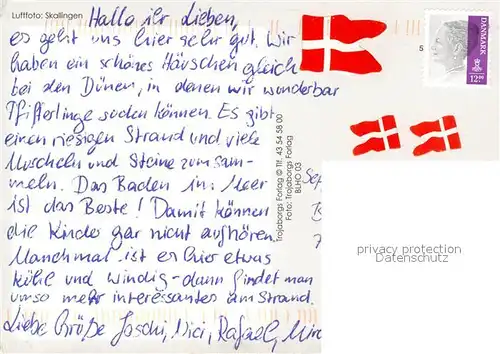 Luftfoto: Skallingen
Hallo ihr Lieben,
es geht uns hier sehr gut. Wir
haben ein schönes Häuschen gleich
bei den Dünen, in denen wir wunderbar
Pfifferlinge suchen können. Es gibt
einen riesigen Strand und viele
Muscheln und Steine zum sam-
meln. Das Baden im Meer
ist das Beste! Damit können
die Kinder gar nicht aufhören.
Manchmal ist es hier etwas
kühl und windig - dann findet man
umso mehr interessantes am Strand.
Liebe Grüße Joschi, Nici, Rafael,
Trojaborgs Forlag © Tlf. 43 54 58 00
Foto: Trojaborgs Forlag
BLHO 03
5
DANMARK
12.00
privacy protection
Datenschutz